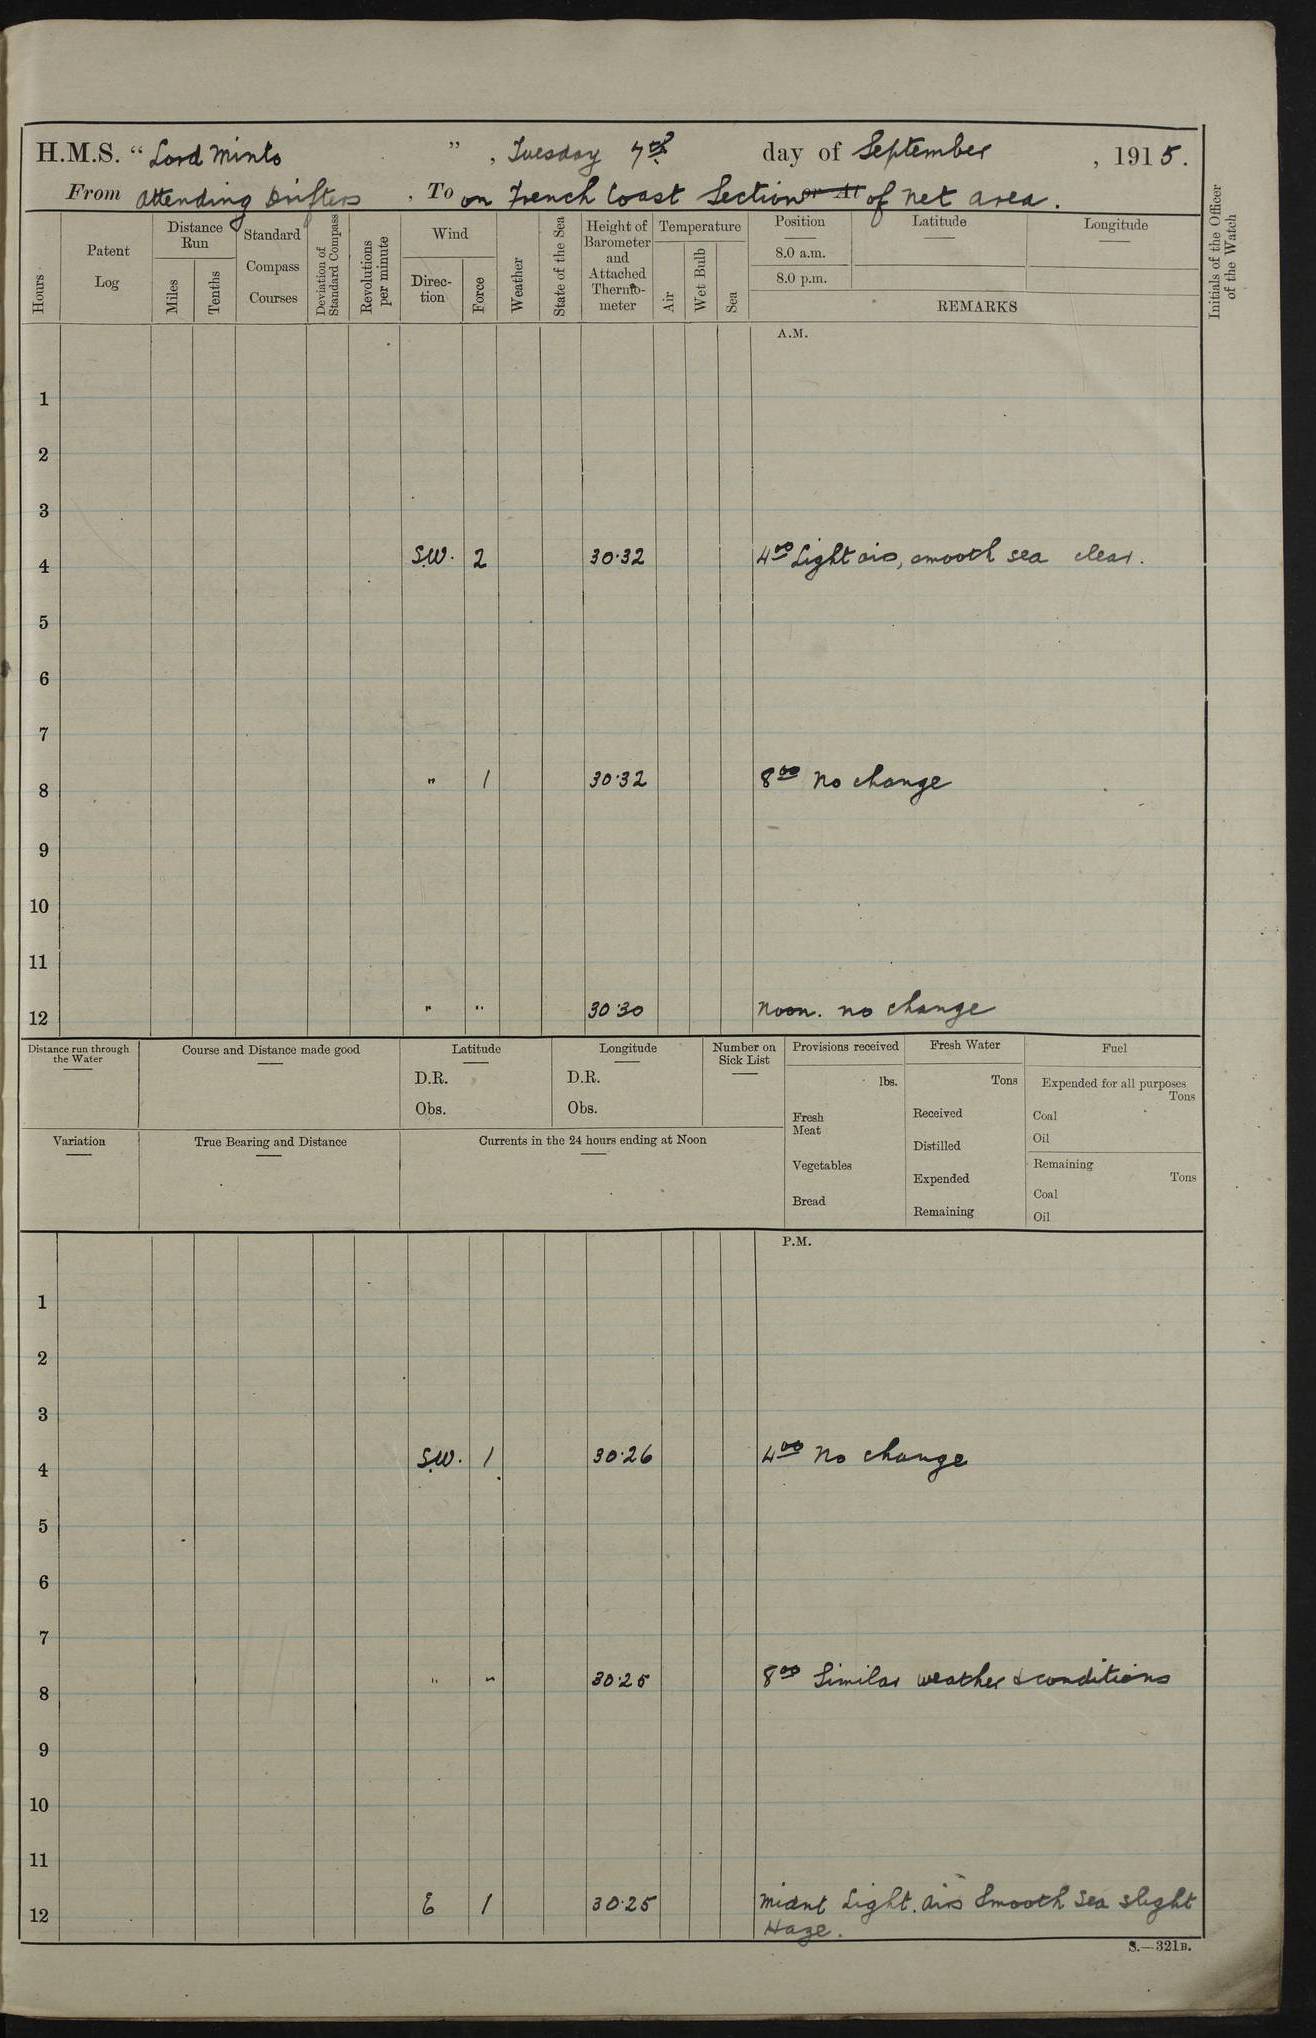 H.M.S. “Lord Minto ” , Tuesday 7th day of September , 1915.
From attending Drifters , To on French Coast Section or At of net area.
Hours
Patent Log
Distance Run
Miles
Tenths
Standard Compass Courses
Deviation of Standard Compass
Revolutions per minute
Wind
Direc-tion
Force
Weather
State of the Sea
Height of Barometer and Attached Thermo-meter
Temperature
Air
Wet Bulb
Sea
Position Latitude Longitude
8.0 a.m.
8.0 p.m.
REMARKS
Initials of the Officer of the Watch
A.M.
1
2
3
4 S.W. 2 30.32 4 00 Light airs, smooth sea clear.
5
6
7
8 " 1 30.32 8 00 No change
9
10
11
12 " " 30.30 Noon. no change
Distance run through the Water
Course and Distance made good
Latitude
D.R.
Obs.
Longitude
D.R.
Obs.
Number on Sick List
Provisions received
lbs.
Fresh Meat
Vegetables
Bread
Fresh Water
Tons
Received
Distilled
Expended
Remaining
Fuel
Expended for all purposes
Tons
Coal
Oil
Remaining
Tons
Coal
Oil
Variation
True Bearing and Distance
Currents in the 24 hours ending at Noon
P.M.
1
2
3
4 S.W. 1 30.26 4 00 No change
5
6
7
8 " " 30.25 8 00 Similar weather & conditions
9
10
11
12 E 1 30.25 Midnt Light. airs Smooth Sea slight
Haze.
S.—321B.